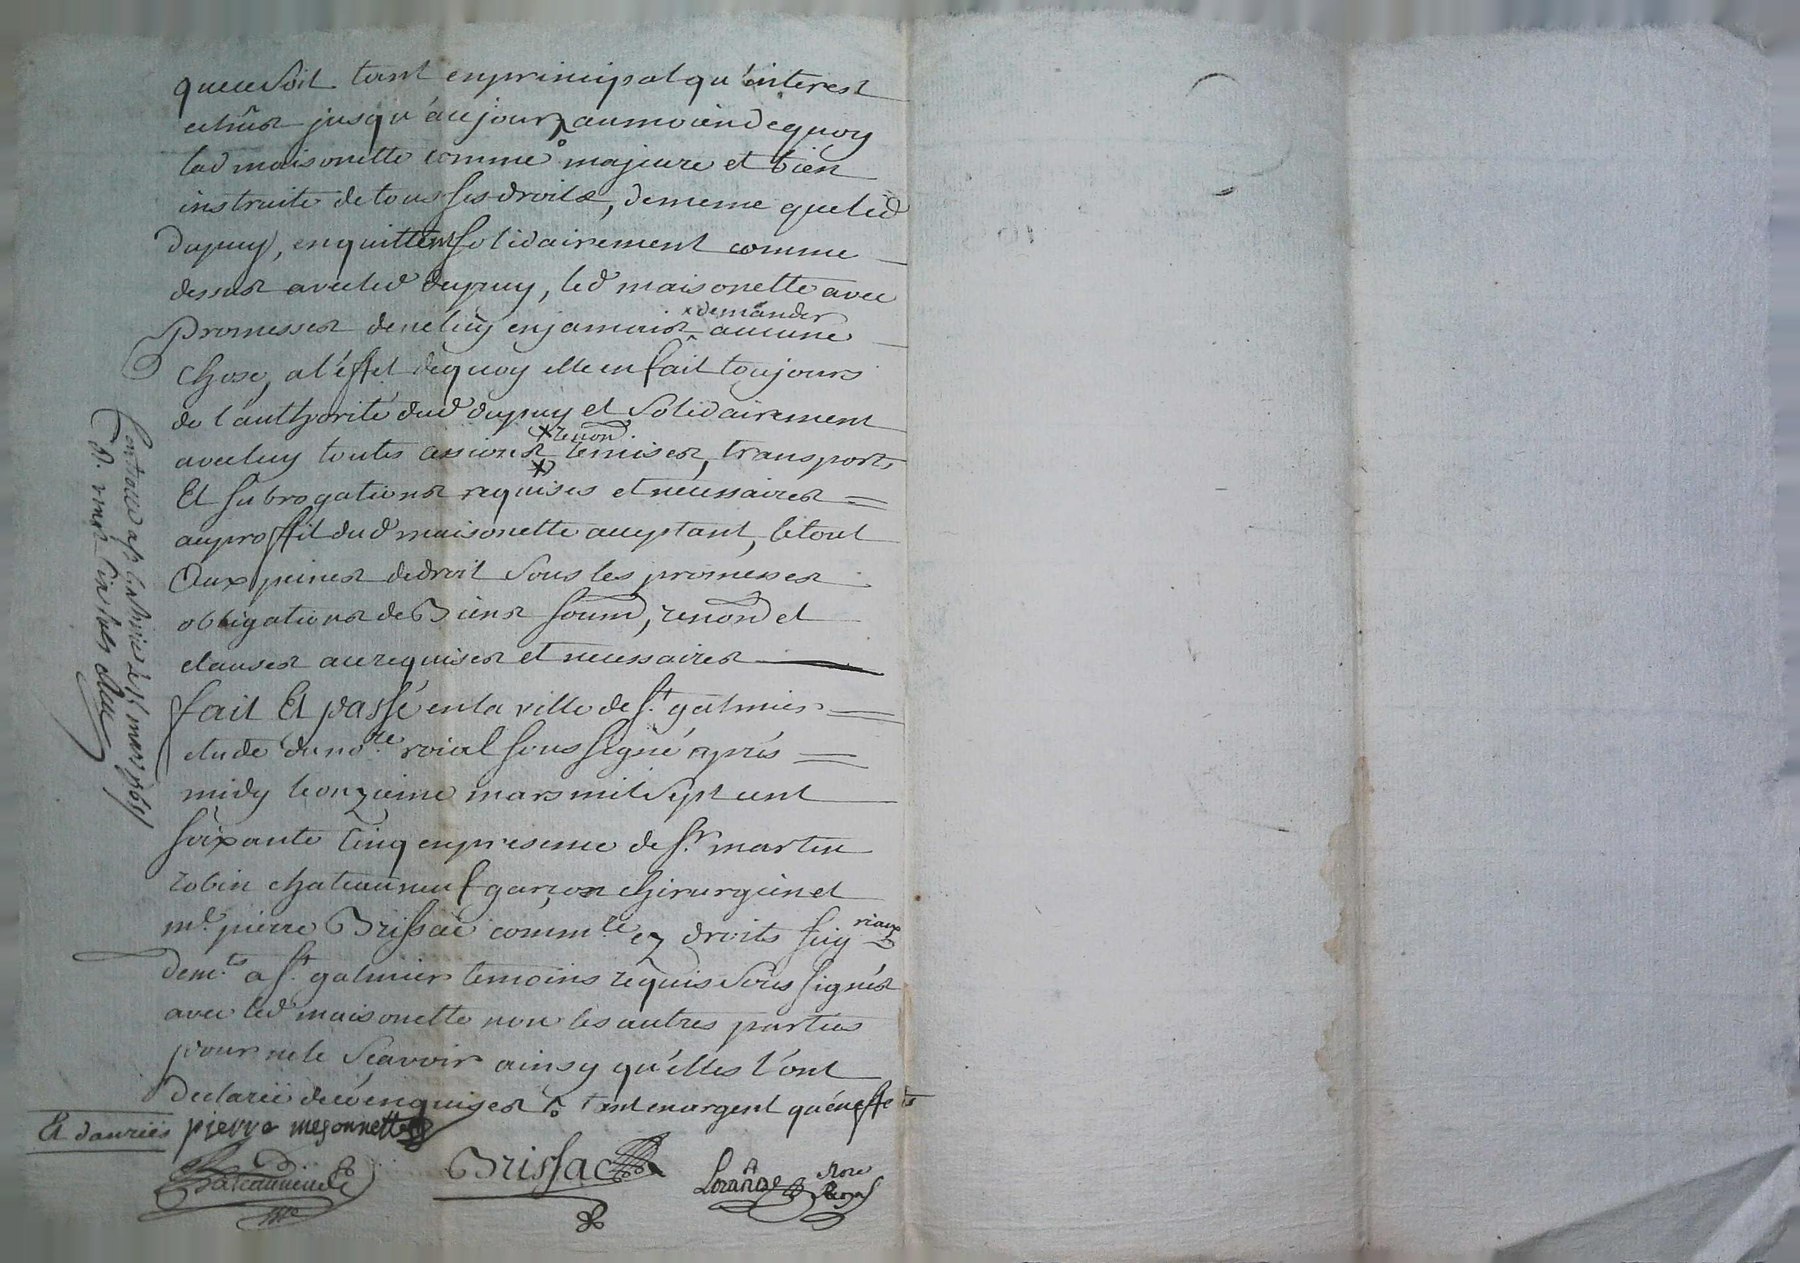 que ce soit tant en principal qu'interest
echûs jusqu'aujourd. au moien de quoy
lad maisonette comme majeure et bien
instruite de tous ses droits, de meme que led
dupuy, en quittent solidairement comme
dessus avec led dupuy, led maisonette avec
promesses de ne luy en jamais x demander aucune
chose, a l'éffet de quoy elle en fait toujours
de l'authorité dud dupuy et solidairement
avec luy toutes cessions remises, transports
x renon.
Et subrogations requises et necessaires
au proffit dud maisonette acceptant, le tout
Aux peines de droit sous les promesses
obligations de Biens soum, renon et
clauses au requises et necessaires
fait Et passé en la ville de st galmier
etude du nore roial soussigné aprés
midy le onzieme mars mil sept cent
soixante cinq en presence de sr martin
robin chateauneuf garçon chirurgien et
me pierre Brissac commre ez droits seigneuriaux
demts a st galmier temoins requis soussignés
avec led maisonette non les autres parties
pour ne le sçavoir ainsy qu'elles l'ont
declaréé de ce enquises tant en argent qu'en effets
Et danrées pierre mesonnette
Chateauneuf
Brissac
Lorange
Nore
Royal
Controllé a st Galmier le mars 1765
R.